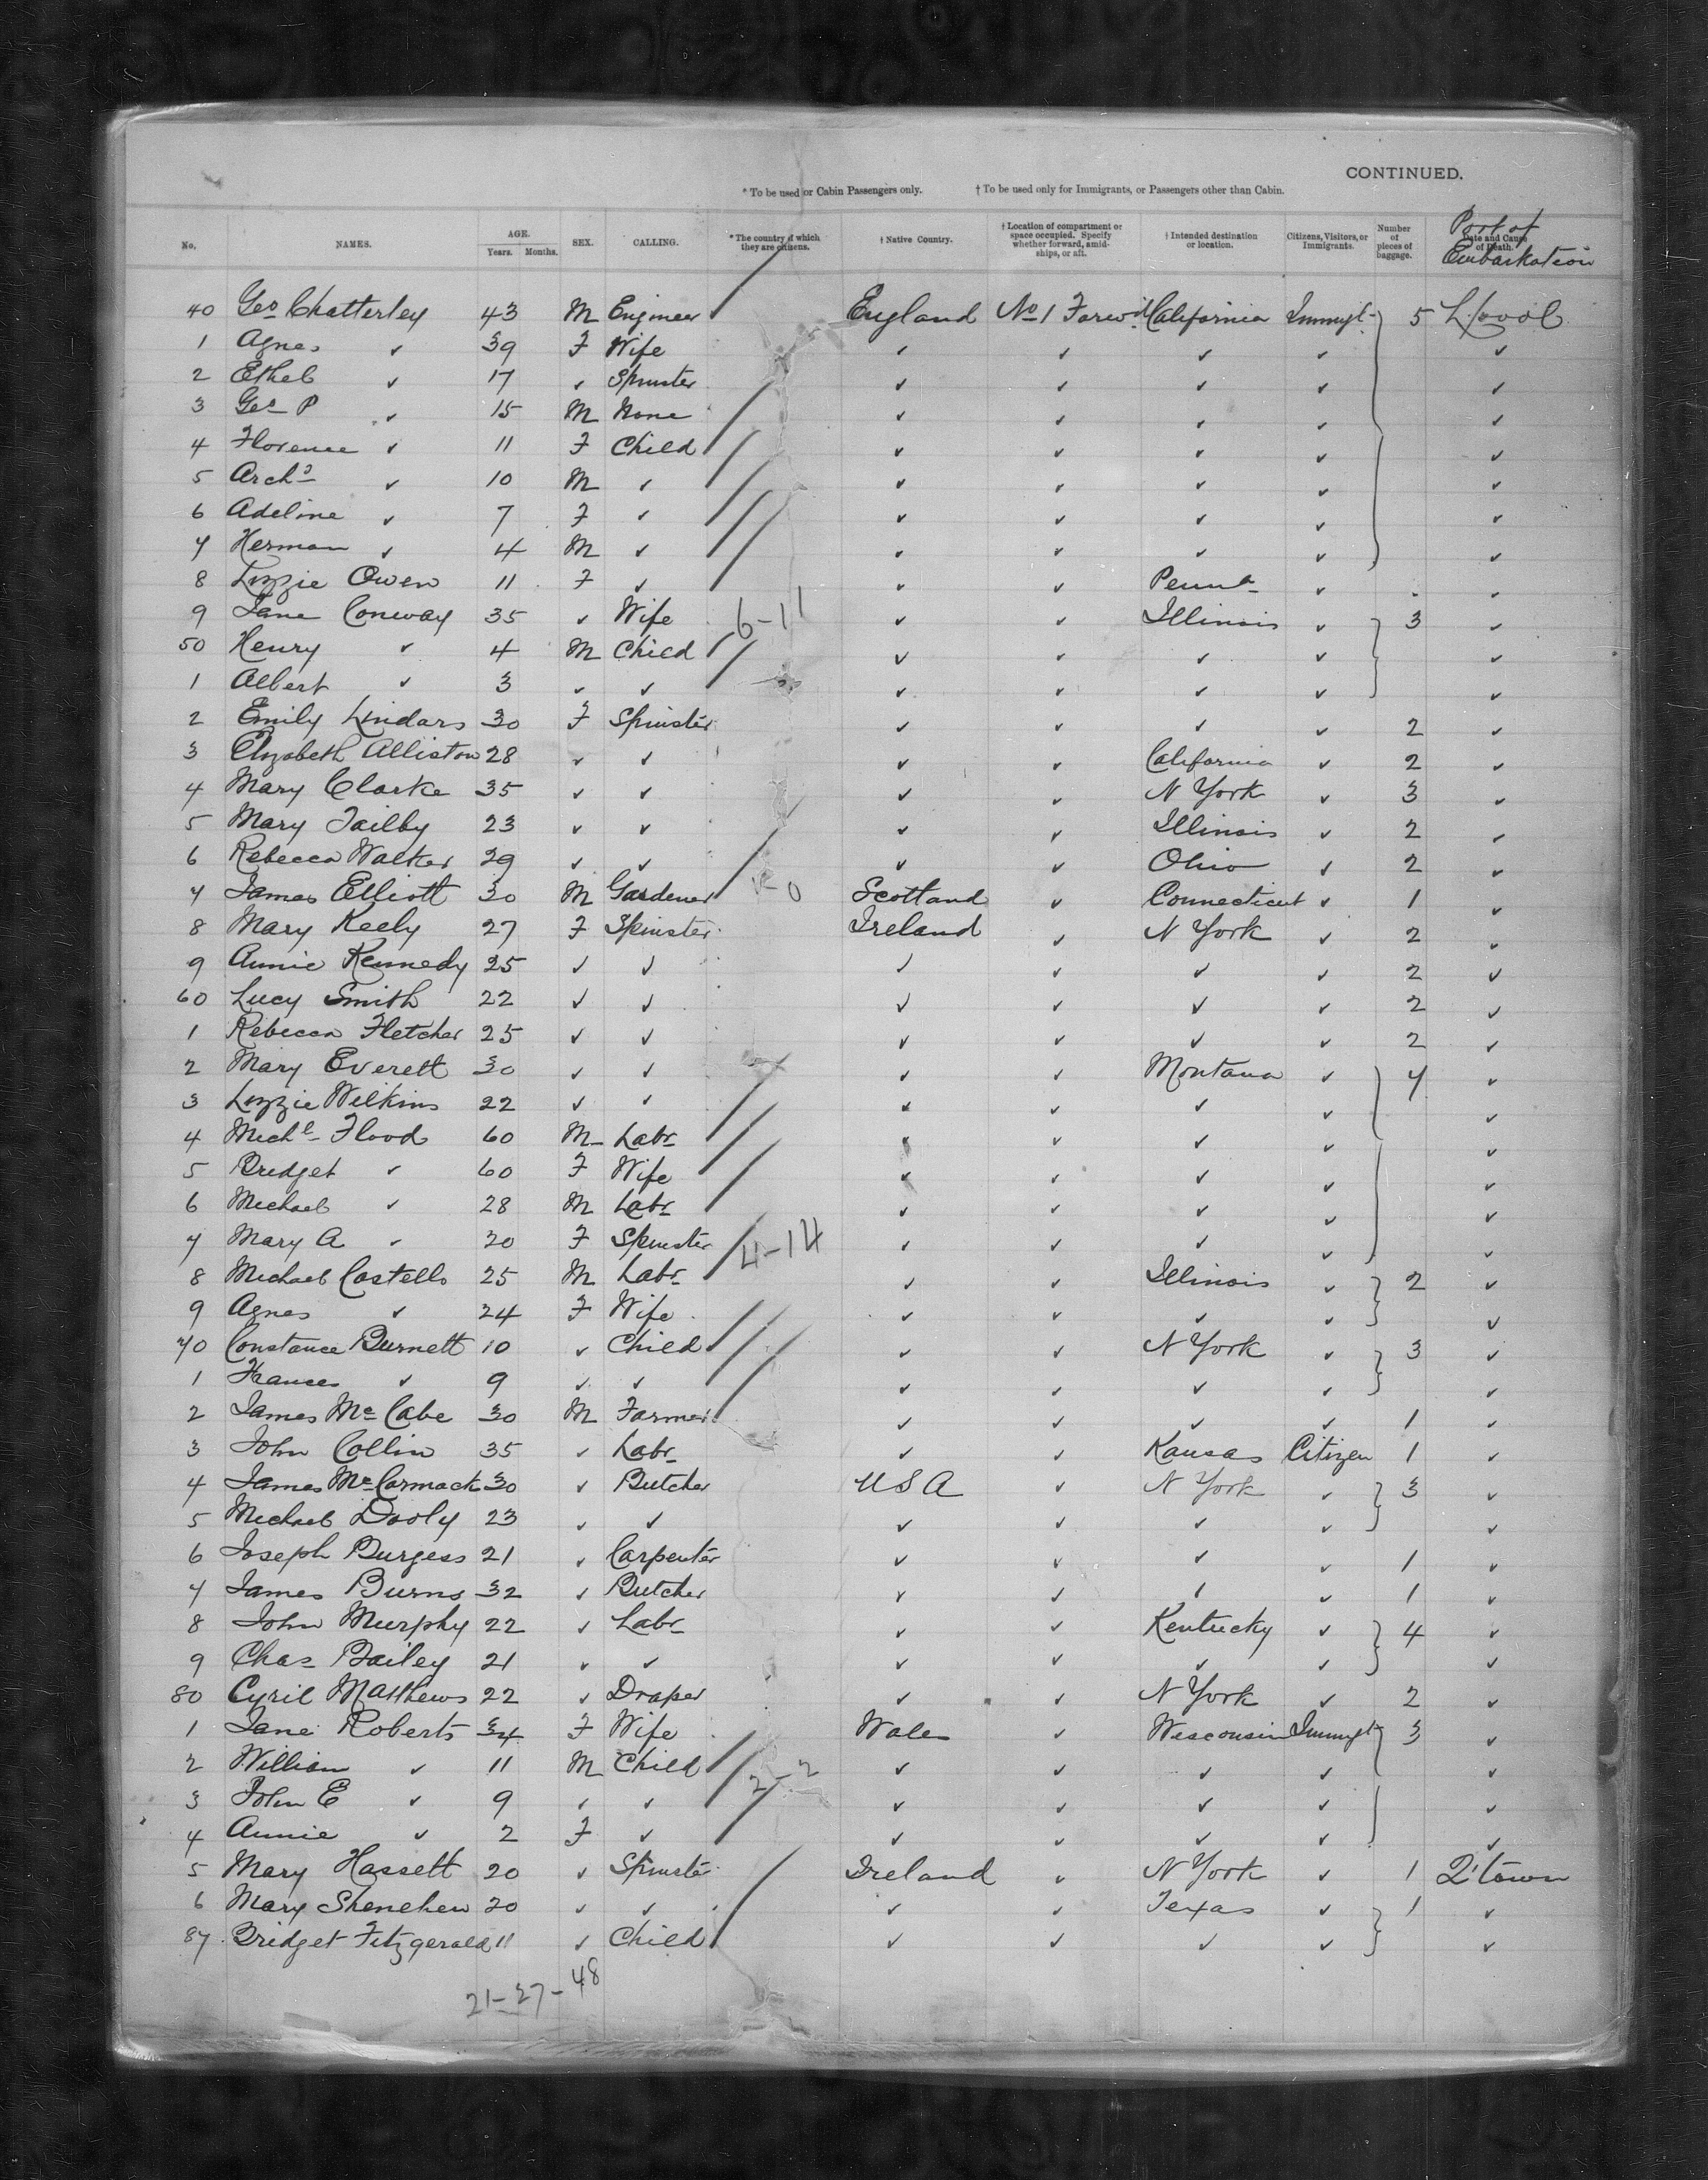 CONTINUED.
* To be used or Cabin Passengers only. † To be used only for Immigrants, or Passengers other than Cabin.
No. NAMES. AGE. Years. Months. SEX. CALLING. * The country of which they are citizens. † Native Country. † Location of compartment or space occupied. Specify whether forward, amidships, or aft. † Intended destination or location. Citizens, Visitors, or Immigrants. Number of pieces of baggage. Date and Cause of Death. Port of Embarkation
40 Geo Chatterley 43 M Engineer England No 1 Forwd California Immigt 5 L/pool
1 Agnes ✓ 39 F Wife ✓ ✓ ✓ ✓ ✓
2 Ethel ✓ 17 ✓ Spinster ✓ ✓ ✓ ✓ ✓
3 Geo P ✓ 15 M None ✓ ✓ ✓ ✓ ✓
4 Florence ✓ 11 F Child ✓ ✓ ✓ ✓ ✓
5 Archd ✓ 10 M ✓ ✓ ✓ ✓ ✓ ✓
6 Adeline ✓ 7 F ✓ ✓ ✓ ✓ ✓ ✓
7 Herman ✓ 4 M ✓ ✓ ✓ ✓ ✓ ✓
8 Lizzie Owen 11 F ✓ ✓ ✓ Penna ✓ ✓
9 Jane Conway 35 ✓ Wife 6-11 ✓ ✓ Illinois ✓ 3 ✓
50 Henry ✓ 4 M Child ✓ ✓ ✓ ✓ ✓
1 Albert ✓ 3 ✓ ✓ ✓ ✓ ✓ ✓ ✓
2 Emily Lindars 30 F Spinster ✓ ✓ ✓ ✓ 2 ✓
3 Elizabeth Alliston 28 ✓ ✓ ✓ ✓ California ✓ 2 ✓
4 Mary Clarke 35 ✓ ✓ ✓ ✓ N York ✓ 3 ✓
5 Mary Tailby 23 ✓ ✓ ✓ ✓ Illinois ✓ 2 ✓
6 Rebecca Walker 29 ✓ ✓ ✓ ✓ Ohio ✓ 2 ✓
7 James Elliott 30 M Gardener Scotland ✓ Connecticut ✓ 1 ✓
8 Mary Keely 27 F Spinster Ireland ✓ N York ✓ 2 ✓
9 Annie Kennedy 25 ✓ ✓ ✓ ✓ ✓ ✓ 2 ✓
60 Lucy Smith 22 ✓ ✓ ✓ ✓ ✓ ✓ 2 ✓
1 Rebecca Fletcher 25 ✓ ✓ ✓ ✓ ✓ ✓ 2 ✓
2 Mary Everett 30 ✓ ✓ ✓ ✓ Montana ✓ 7 ✓
3 Lizzie Wilkins 22 ✓ ✓ ✓ ✓ ✓ ✓ ✓
4 Michl Flood 60 M Labr ✓ ✓ ✓ ✓ ✓
5 Bridget ✓ 60 F Wife ✓ ✓ ✓ ✓ ✓
6 Michael ✓ 28 M Labr ✓ ✓ ✓ ✓ ✓
7 Mary A ✓ 20 F Spinster 4-14 ✓ ✓ ✓ ✓ ✓
8 Michael Costello 25 M Labr ✓ ✓ Illinois ✓ 2 ✓
9 Agnes ✓ 24 F Wife ✓ ✓ ✓ ✓ ✓
70 Constance Burnett 10 ✓ Child ✓ ✓ N York ✓ 3 ✓
1 Frances ✓ 9 ✓ ✓ ✓ ✓ ✓ ✓ ✓
2 James Mc Cabe 30 M Farmer ✓ ✓ ✓ ✓ 1 ✓
3 John Collin 35 ✓ Labr ✓ ✓ Kansas Citizen 1 ✓
4 James McCormack 30 ✓ Butcher USA ✓ N York ✓ 3 ✓
5 Michael Dooly 23 ✓ ✓ ✓ ✓ ✓ ✓ ✓
6 Joseph Burgess 21 ✓ Carpenter ✓ ✓ ✓ ✓ 1 ✓
7 James Burns 32 ✓ Butcher ✓ ✓ ✓ ✓ 1 ✓
8 John Murphy 22 ✓ Labr ✓ ✓ Kentucky ✓ 4 ✓
9 Chas Bailey 21 ✓ ✓ ✓ ✓ ✓ ✓ ✓
80 Cyril Matthews 22 ✓ Draper ✓ ✓ N York ✓ 2 ✓
1 Jane Roberts 34 F Wife Wales ✓ Wisconsin Immigt 3 ✓
2 William ✓ 11 M Child 2-2 ✓ ✓ ✓ ✓ ✓
3 John E ✓ 9 ✓ ✓ ✓ ✓ ✓ ✓ ✓
4 Annie ✓ 2 F ✓ ✓ ✓ ✓ ✓ ✓
5 Mary Hassett 20 ✓ Spinster Ireland ✓ N York ✓ 1 Q'town
6 Mary Shenehen 20 ✓ ✓ ✓ ✓ Texas ✓ 1 ✓
87 Bridget Fitzgerald 11 ✓ Child ✓ ✓ ✓ ✓ ✓
21-27-48